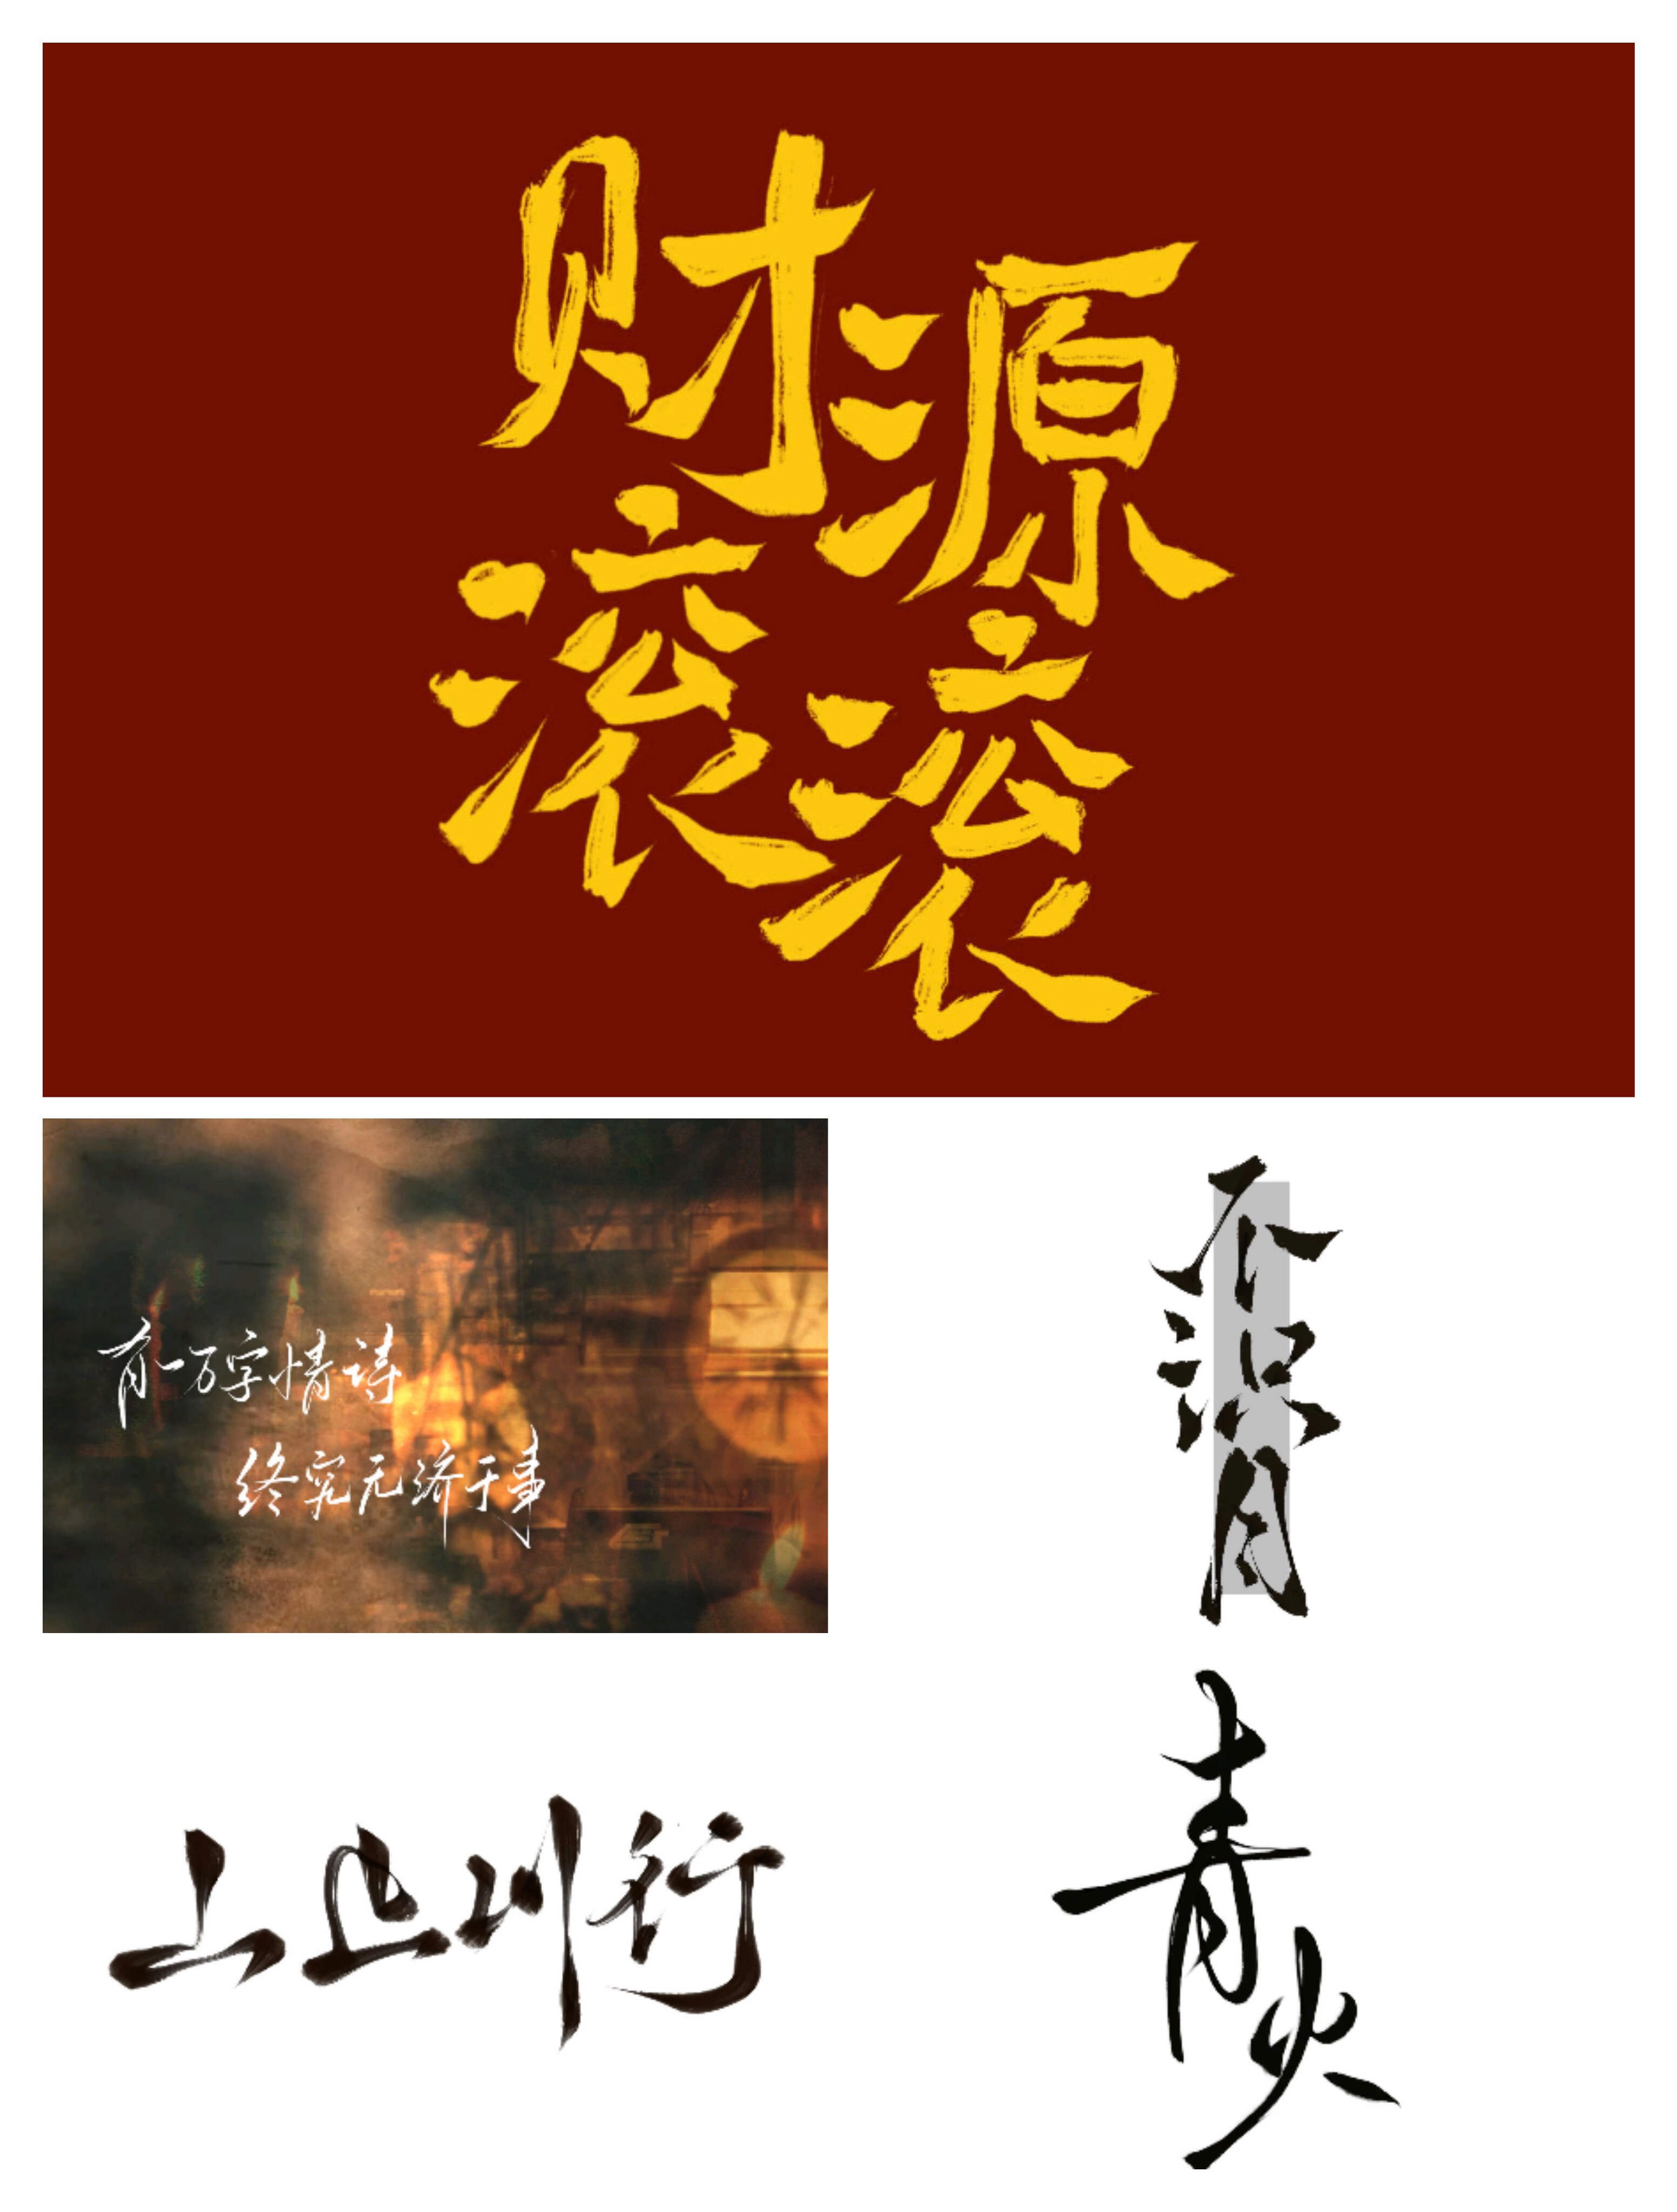 财源
滚滚
有一万字情诗
终究无济于事
不识月
山止川行
青火